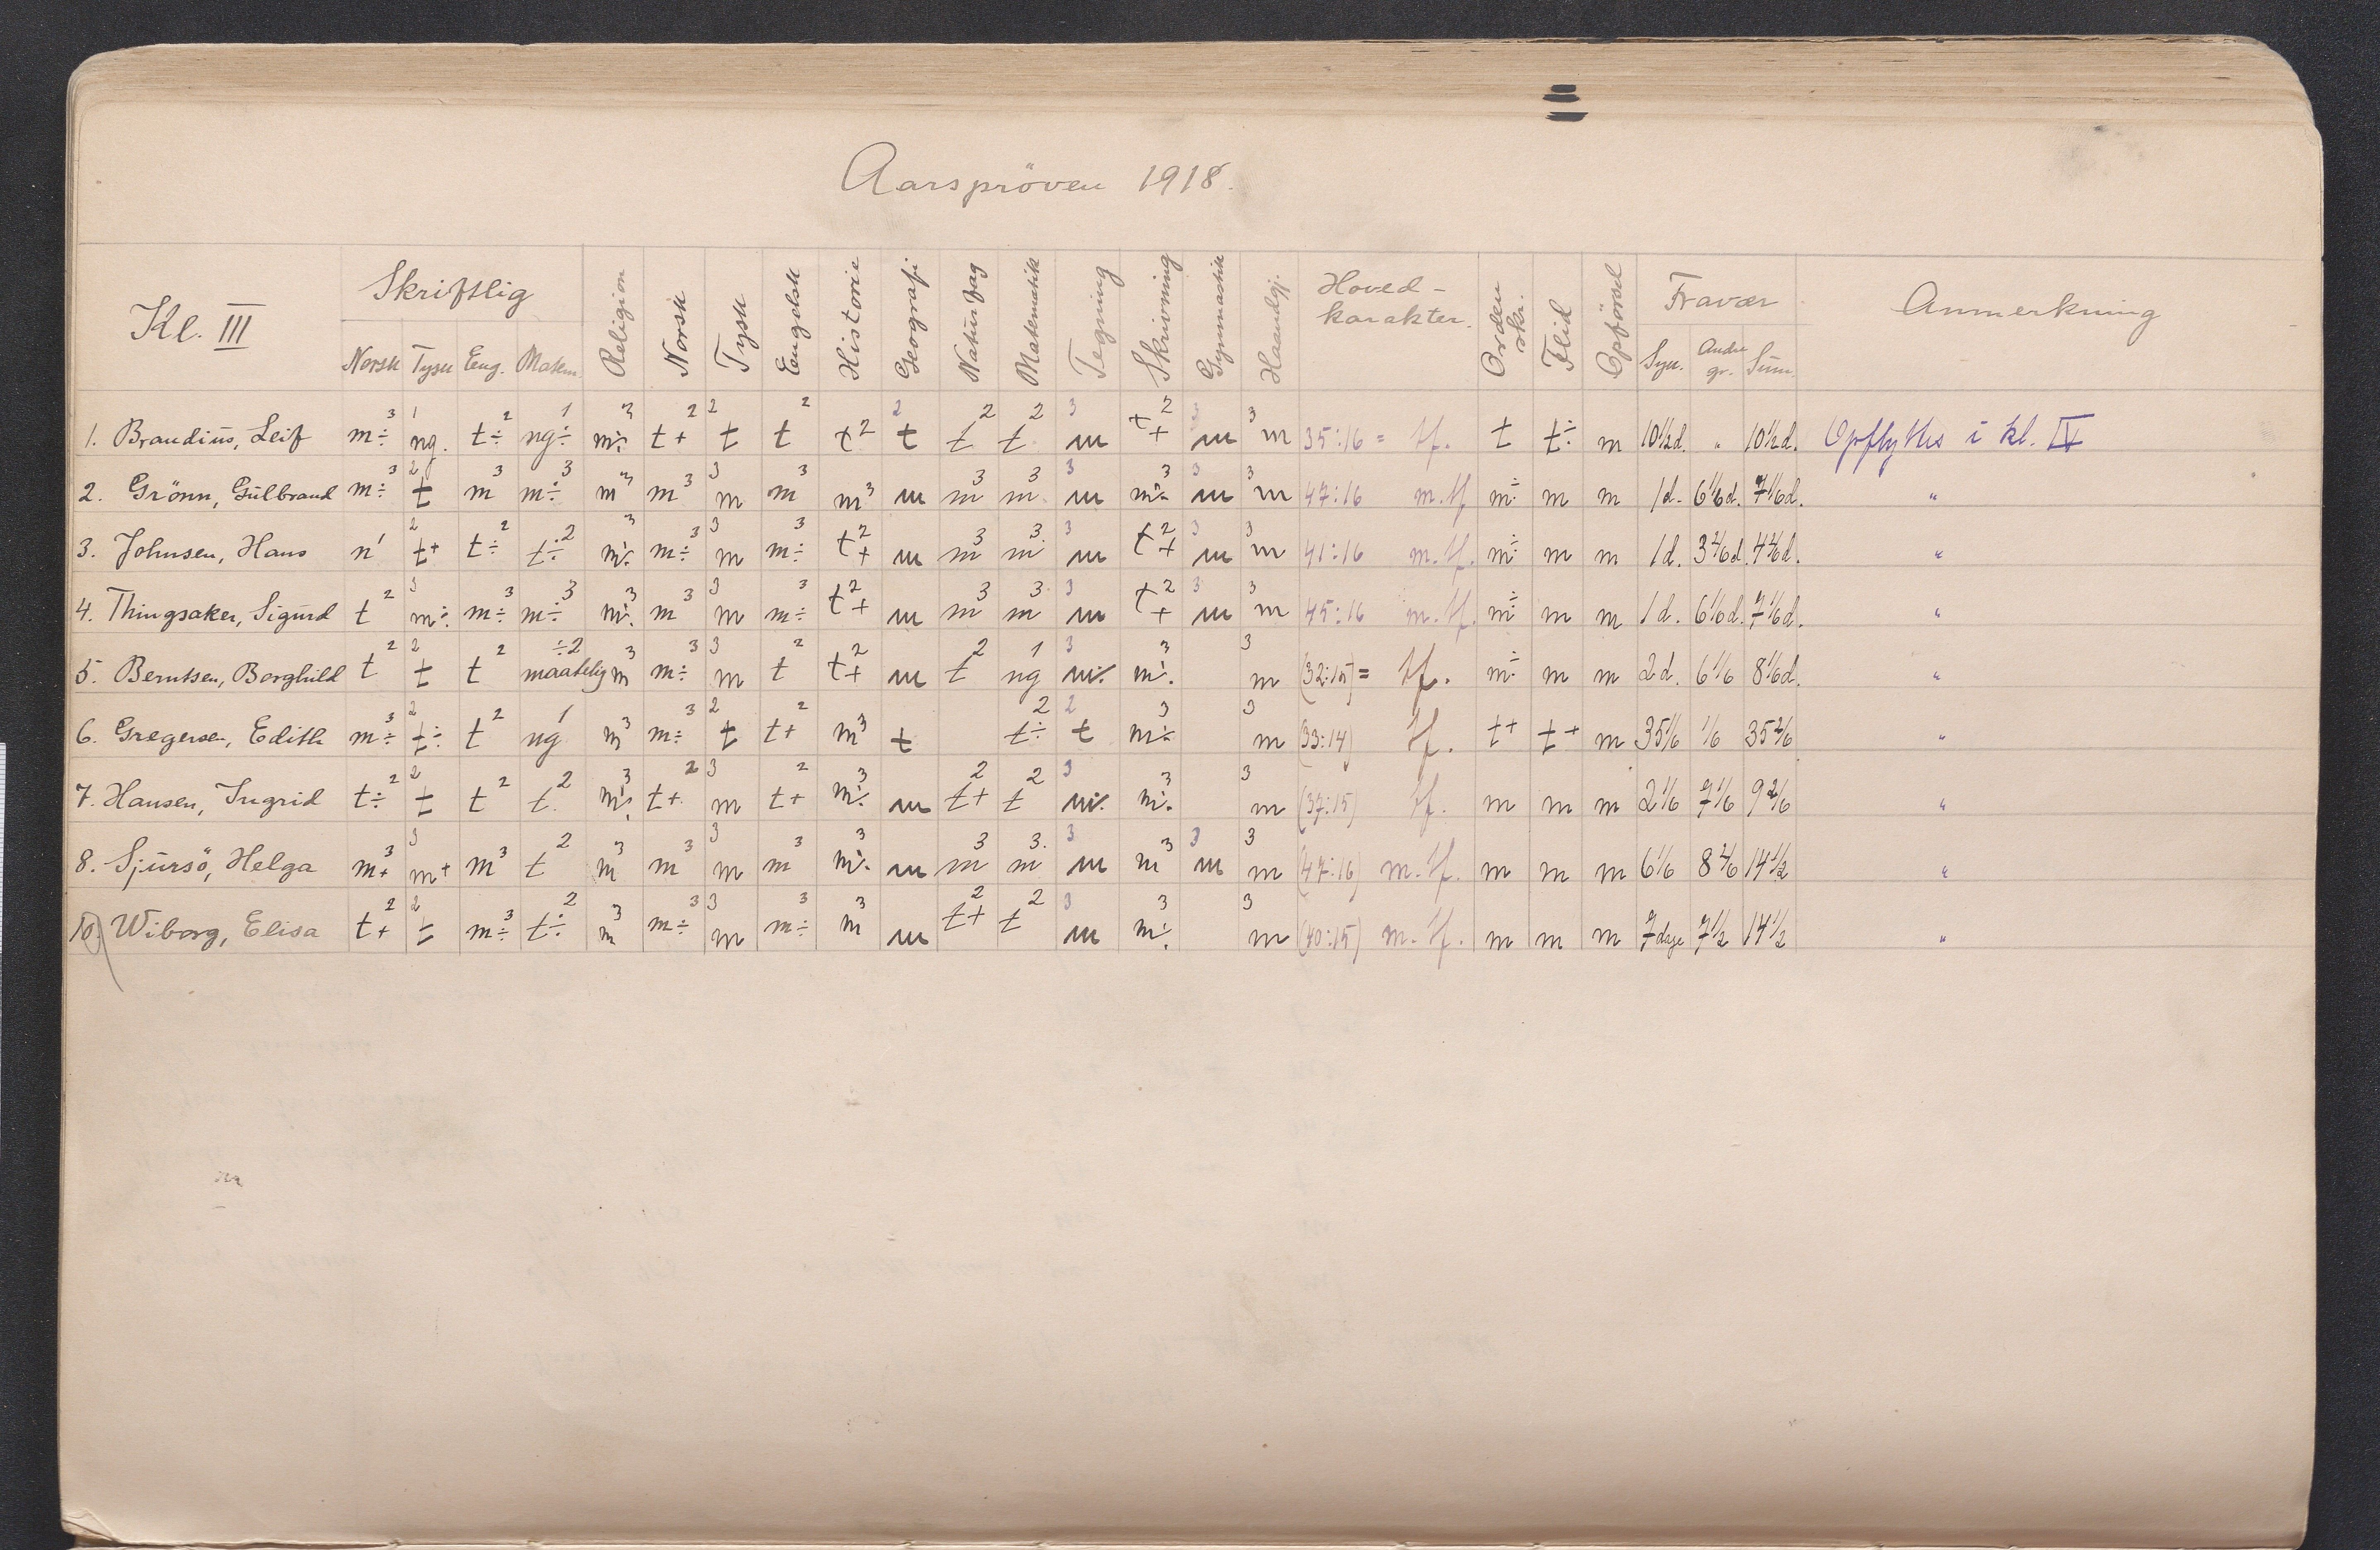 Aarspröven 1918.
Kl. III Skriftlig Religion Norsk Tysk Eengelsk Historie Geografi Naturfag Matematik Tegning Skrivning Gymnastik Haandgj. Hoved-karakter. Orden skr. Flid Opförsel Fravær Anmerkning
Norsk Tysk Eeng. Matem. Syk. Andre gr. Sum.
1. Brandius, Leif m÷ 3 ng. 1 t÷ 2 ng÷ 1 m÷ 3 t+ 2 t 2 t 2 t 2 t 2 t 2 t 2 m 3 t+ 2 m 3 m 3 35:16 = tf. t t÷ m 10½d. " 10½d. Opflyttes i kl. IV
2. Grönn, Gulbrand m÷ 3 t 2 m 3 m÷ 3 m 3 m 3 m 3 m 3 m 3 m m 3 m 3 m 3 m÷ 3 m 3 m 3 47:16 m.tf m÷ m m 1d. 6 1/6d. 7 1/6d. "
3. Johnsen, Hans n 1 t+ 2 t÷ 2 t÷ 2 m÷ 3 m÷ 3 m 3 m÷ 3 t+ 2 m m 3 m 3 m 3 t+ 2 m 3 m 3 41:16 m.tf. m÷ m m 1d. 3 2/6d. 4 2/6d. "
4. Thingsaker, Sigurd t 2 m÷ 3 m÷ 3 m÷ 3 m÷ 3 m 3 m 3 m÷ 3 t+ 2 m m 3 m 3 m 3 t+ 2 m 3 m 3 45:16 m.tf. m÷ m m 1d. 6 1/6d. 7 1/6d. "
5. Berntsen, Borghild t 2 t 2 t 2 maatelig ÷2 m 3 m÷ 3 m 3 t 2 t+ 2 m t 2 ng 1 m÷ 3 m÷ 3 m 3 (32:15) = tf. m÷ m m 2d. 6 1/6 8 1/6d. "
6. Gregersen, Edith m÷ 3 t÷ 2 t 2 ng 1 m 3 m÷ 3 t 2 t+ 2 m 3 t t÷ 2 t 2 m÷ 3 m 3 (33:14) tf. t+ t+ m 35 1/6 1/6 35 2/6 "
7. Hansen, Ingrid t÷ 2 t 2 t 2 t 2 m÷ 3 t+ 2 m 3 t+ 2 m÷ 3 m t+ 2 t 2 m÷ 3 m÷ 3 m 3 (37:15) tf. m m m 2 1/6 7 1/6 9 2/6 "
8. Sjursö, Helga m+ 3 m+ 3 m 3 t 2 m 3 m 3 m 3 m 3 m÷ 3 m m 3 m 3 m 3 m 3 m 3 m 3 (47:16) m.tf. m m m 6 1/6 8 2/6 14 1/2 "
10. Wiborg, Elisa t+ 2 t 2 m÷ 3 t÷ 2 m 3 m÷ 3 m 3 m÷ 3 m 3 m t+ 2 t 2 m 3 m÷ 3 m 3 (40:15) m.tf. m m m 7 dage 7 1/2 14 1/2 "